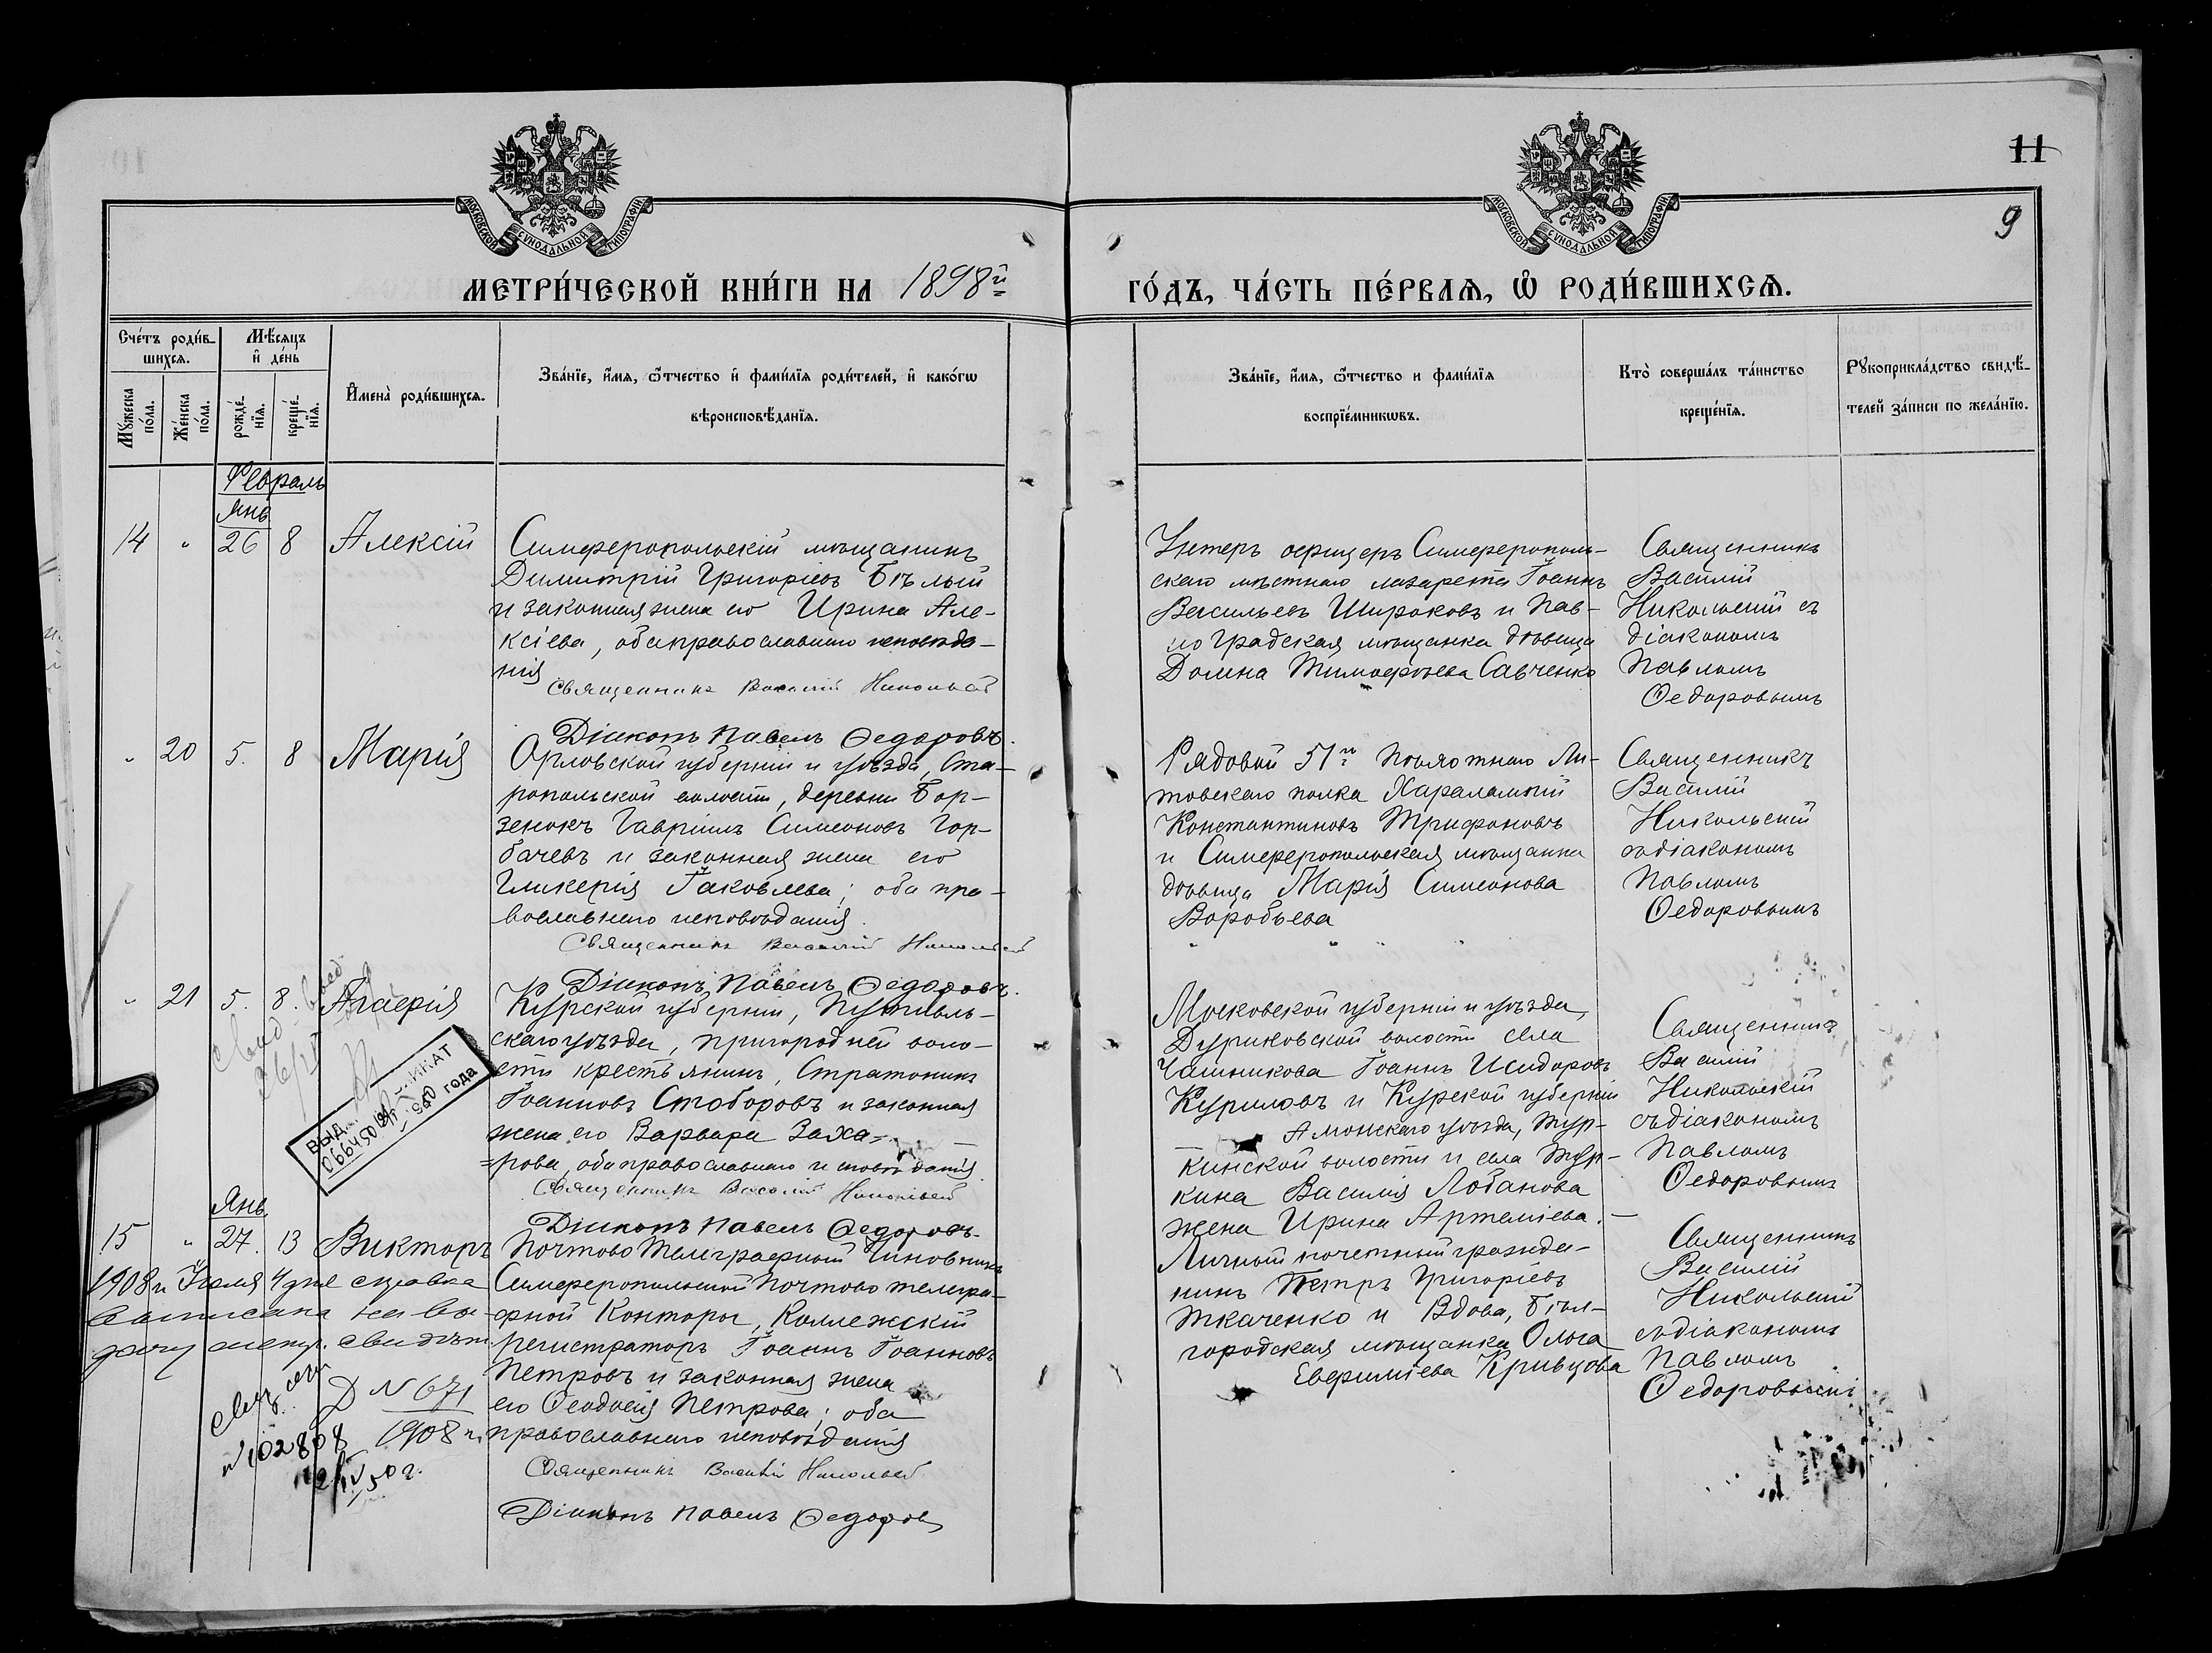 11
9
МОСКОВСКОЙ СѴНОДАЛЬНОЙ ТИПОГРАФІИ
МОСКОВСКОЙ СѴНОДАЛЬНОЙ ТИПОГРАФІИ
МЕТРИ́ЧЕСКОЙ КНИ́ГИ НА 1898й
ГО́ДЪ, ЧА́СТЬ ПЕ́РВАѦ, Ѽ РОДИ́ВШИХСѦ.
Сче́тъ роди́в-
шихсѧ.
Мѣ́сѧцъ
и҆ де́нь
Мꙋ́жеска
по́ла.
Же́нска
по́ла.
рожде́-
нїѧ.
креще́-
нїѧ.
И҆мена̀ роди́вшихсѧ.
Зва́нїе, и҆́мѧ, ѻ҆́тчество и҆ фами́лїѧ роди́телей, и҆ како́гѡ
вѣроисповѣ́данїѧ.
Зва́нїе, и҆́мѧ, ѻ҆́тчество и фами́лїѧ
воспрїе́мникѡвъ.
Кто̀ соверша́лъ та́инство
креще́нїѧ.
Рꙋкоприкла́дство свидѣ́-
телей за́писи по жела́нїю.
Февраль
Янв
14 " 26 8 Алексій
Симферопольскій мѣщанинъ
Димитрій Григоріевъ Бѣлый
и законная жена его Ирина Але-
ксіева, оба православнаго исповѣда-
нія
Священникъ Василій Никольскій
Діаконъ Павелъ Ѳедоровъ.
Унтеръ офицеръ Симферополь-
скаго мѣстнаго лазарета Іоаннъ
Васильевъ Широковъ и Пав-
лоградская мѣщанка дѣвица
Домна Тимофѣева Савченко
Священникъ
Василій
Никольскій съ
діакономъ
Павломъ
Ѳедоровымъ
" 20 5. 8 Марія
Орловской губерніи и уѣзда, Ста-
ропольской волости, деревни Бор-
зенокъ Гавріилъ Симеоновъ Гор-
бачевъ и законная жена его
Гликерія Іаковлева; оба пра-
вославнаго исповѣданія.
Священникъ Василій Никольскій
Діаконъ Павелъ Ѳедоровъ.
Рядовой 51го пѣхотнаго Ли-
товскаго полка Харалампій
Константиновъ Трифоновъ
и Симферопольская мѣщанка
дѣвица Марія Симеонова
Воробьева
Священникъ
Василій
Никольскій
съ діакономъ
Павломъ
Ѳедоровымъ
" 21 5. 8. Агаѳія
Курской губерніи, Путивль-
скаго уѣзда, пригородней воло-
сти крестьянинъ, Стратоникъ
Іоанновъ Стоборовъ и законная
жена его Варвара Заха=
=рова, оба православнаго исповѣданія
Священникъ Василій Никольскій
Діаконъ Павелъ Ѳедоровъ.
Московской губерніи и уѣзда,
Дуриковской волости села
Чашникова Іоаннъ Исидоровъ
Куриловъ и Курской губерніи
уѣзда, Тур-
кинской волости и села Тур-
кина Василія Лобанова
жена Ирина Артеміева.
Священникъ
Василій
Никольскій
съ діакономъ
Павломъ
Ѳедоровымъ
ИКАТ
года
Янв.
15 " 27. 13 Викторъ
Почтово Телеграфный Чиновникъ
Симферопольской Почтово телегра-
фной Конторы, Коллежскій
регистраторъ Іоаннъ Іоанновъ
Петровъ и законная жена
его Ѳеодосія Петрова; оба
православнаго исповѣданія
Священникъ Василій Никольскій
Діаконъ Павелъ Ѳедоровъ
Личный почетный гражда-
нинъ Петръ Григоріевъ
Ткаченко и Вдова, Бѣл-
городская мѣщанка Ольга
Евфиміева Кривцова
Священникъ
Василій
Никольскій
съ діакономъ
Павломъ
Ѳедоровымъ
1908 г. Іюля 4 дня справка
выписана на вы-
дачу метр. свидѣт.
Д N 671
1908 г.
N 102808
12/IV 50 г.